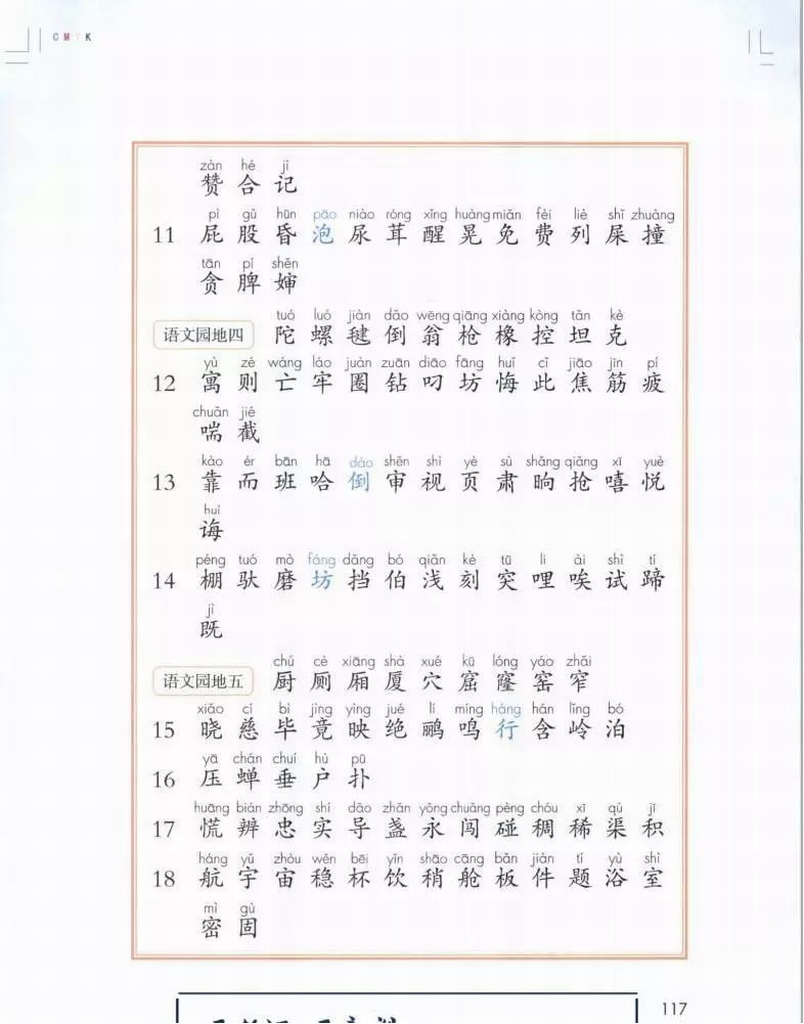 C M Y K
zàn hé jì
赞 合 记
pì gǔ hūn pāo niào róng xǐng huàng miǎn fèi liè shǐ zhuàng
11 屁 股 昏 泡 尿 茸 醒 晃 免 费 列 屎 撞
tān pí shěn
贪 脾 婶
tuó luó jiàn dǎo wēng qiāng xiàng kòng tǎn kè
语文园地四 陀 螺 毽 倒 翁 枪 橡 控 坦 克
yù zé wáng láo juàn zuān diāo fāng huǐ cǐ jiāo jīn pí
12 寓 则 亡 牢 圈 钻 叼 坊 悔 此 焦 筋 疲
chuǎn jié
喘 截
kào ér bān hā dào shěn shì yè sù shǎng qiǎng xī yuè
13 靠 而 班 哈 倒 审 视 页 肃 晌 抢 嘻 悦
huì
诲
péng tuó mò fáng dǎng bó qiǎn kè tū li ài shì tí
14 棚 驮 磨 坊 挡 伯 浅 刻 突 哩 唉 试 蹄
jì
既
chú cè xiāng shà xué kū lóng yáo zhǎi
语文园地五 厨 厕 厢 厦 穴 窟 窿 窑 窄
xiǎo cí bì jìng yìng jué lí míng háng hán lǐng bó
15 晓 慈 毕 竟 映 绝 鹂 鸣 行 含 岭 泊
yā chán chuí hù pū
16 压 蝉 垂 户 扑
huāng biàn zhōng shí dǎo zhǎn yǒng chuǎng pèng chóu xī qú jī
17 慌 辨 忠 实 导 盏 永 闯 碰 稠 稀 渠 积
háng yǔ zhòu wěn bēi yǐn shāo cāng bǎn jiàn tí yù shì
18 航 宇 宙 稳 杯 饮 稍 舱 板 件 题 浴 室
mì gù
密 固
117